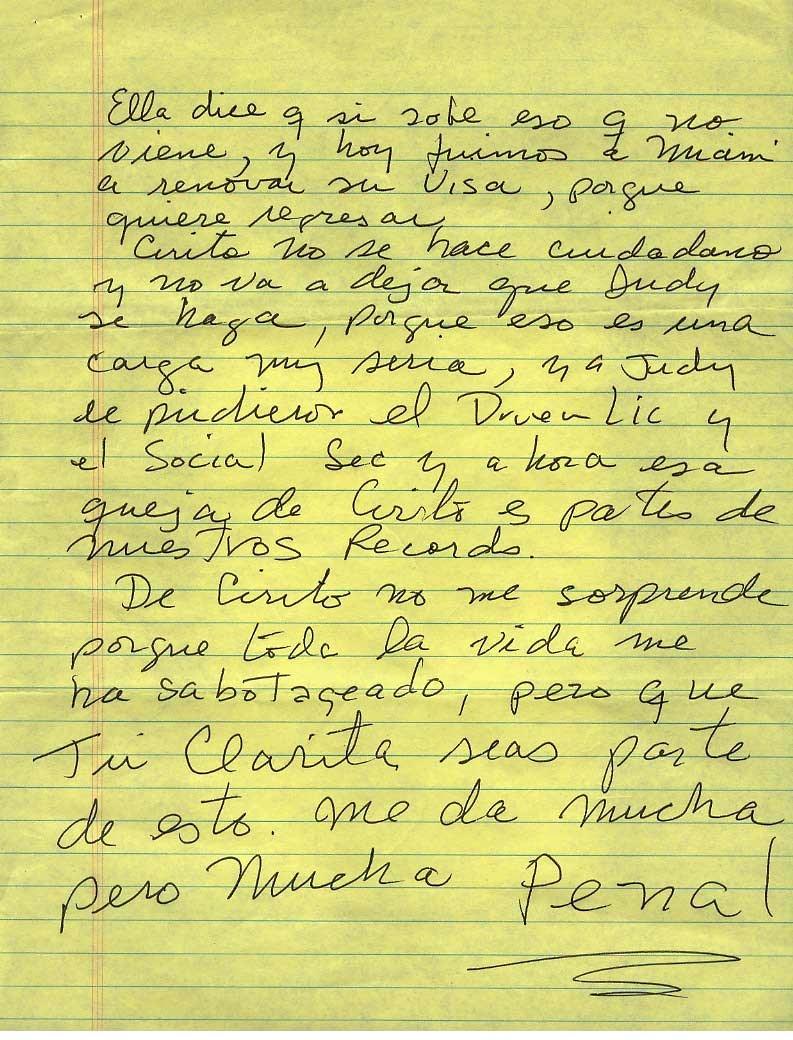 Ella dice q si sabe eso q no
viene, y hoy fuimos a Miami
a renovar su Visa, porque
quiere regresar,
Cirito no se hace cuidadano
y no va a dejar que Judy
se haga, porque eso es una
carga muy seria, y a Judy
le pidieron el Driver Lic y
el Social Sec y ahora esa
queja de Cirito es partes de
nuestros Records.
De Cirito no me sorprende
porque toda la vida me
ha sabotageado, pero que
Tu Clarita seas parte
de esto. me da mucha
pero Mucha Pena!